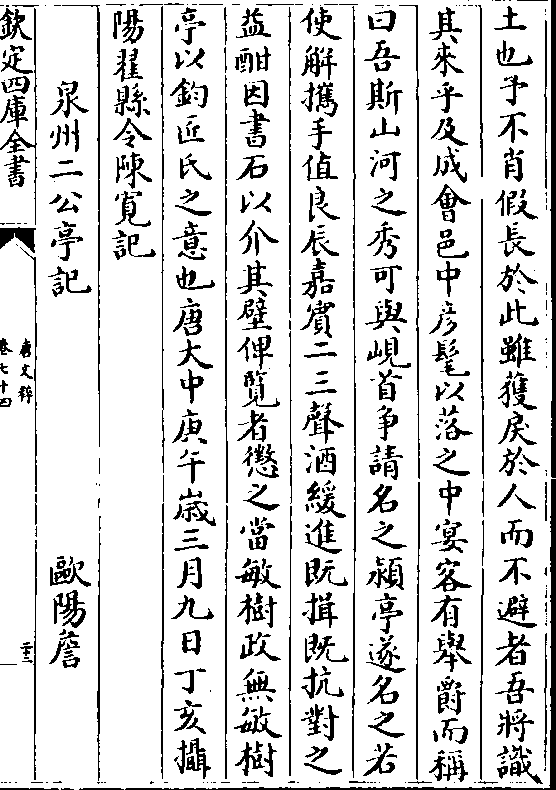 土也予不肖假長於此雖獲戾於人而不避者吾將識
其來乎及成會邑中彦髦以落之中宴客有舉爵而稱
曰吾斯山河之秀可與峴首争請名之潁亭遂名之若
使解攜手值良辰嘉賓二三聲酒緩進既揖既抗對之
益酣因書石以介其壁俾覧者懲之當敏樹政無敏樹
亭以鈞匠氏之意也唐大中庚午歳三月九日丁亥攝
陽翟縣令陳寛記
泉州二公亭記 歐陽詹
欽定四庫全書
唐文粹
卷七十四
二十三